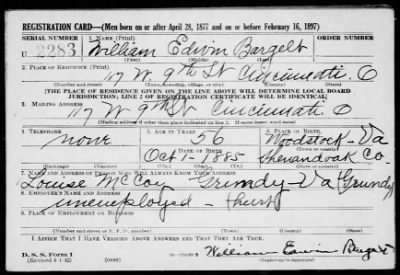 REGISTRATION CARD—(Men born on or after April 28, 1877 and on or before February 16, 1897)
SERIAL NUMBER 1. NAME (Print) ORDER NUMBER
U 2283 William Edwin Bargelt
(First) (Middle) (Last)
2. PLACE OF RESIDENCE (Print)
17 W. 9th St Cincinnati. O
(Number and street) (Town, township, village, or city) (County) (State)
[THE PLACE OF RESIDENCE GIVEN ON THE LINE ABOVE WILL DETERMINE LOCAL BOARD
JURISDICTION; LINE 2 OF REGISTRATION CERTIFICATE WILL BE IDENTICAL]
3. MAILING ADDRESS
17 W 9th St Cincinnati. O
(Mailing address if other than place indicated on line 2. If same insert word same)
4. TELEPHONE 5. AGE IN YEARS 6. PLACE OF BIRTH
none 56 Woodstock - Va
DATE OF BIRTH (Town or county)
Oct 1 - 1885 Shenandoah Co
(Exchange) (Number) (Mo.) (Day) (Yr.) (State or country)
7. NAME AND ADDRESS OF PERSON WHO WILL ALWAYS KNOW YOUR ADDRESS
Louise McCoy Grundy - Va (Grundy)
8. EMPLOYER'S NAME AND ADDRESS
unemployed - hurt
9. PLACE OF EMPLOYMENT OR BUSINESS
(Number and street or R. F. D. number) (Town) (County) (State)
I AFFIRM THAT I HAVE VERIFIED ABOVE ANSWERS AND THAT THEY ARE TRUE.
D. S. S. Form 1
(Revised 4-1-42) (over) William Edwin Bargelt